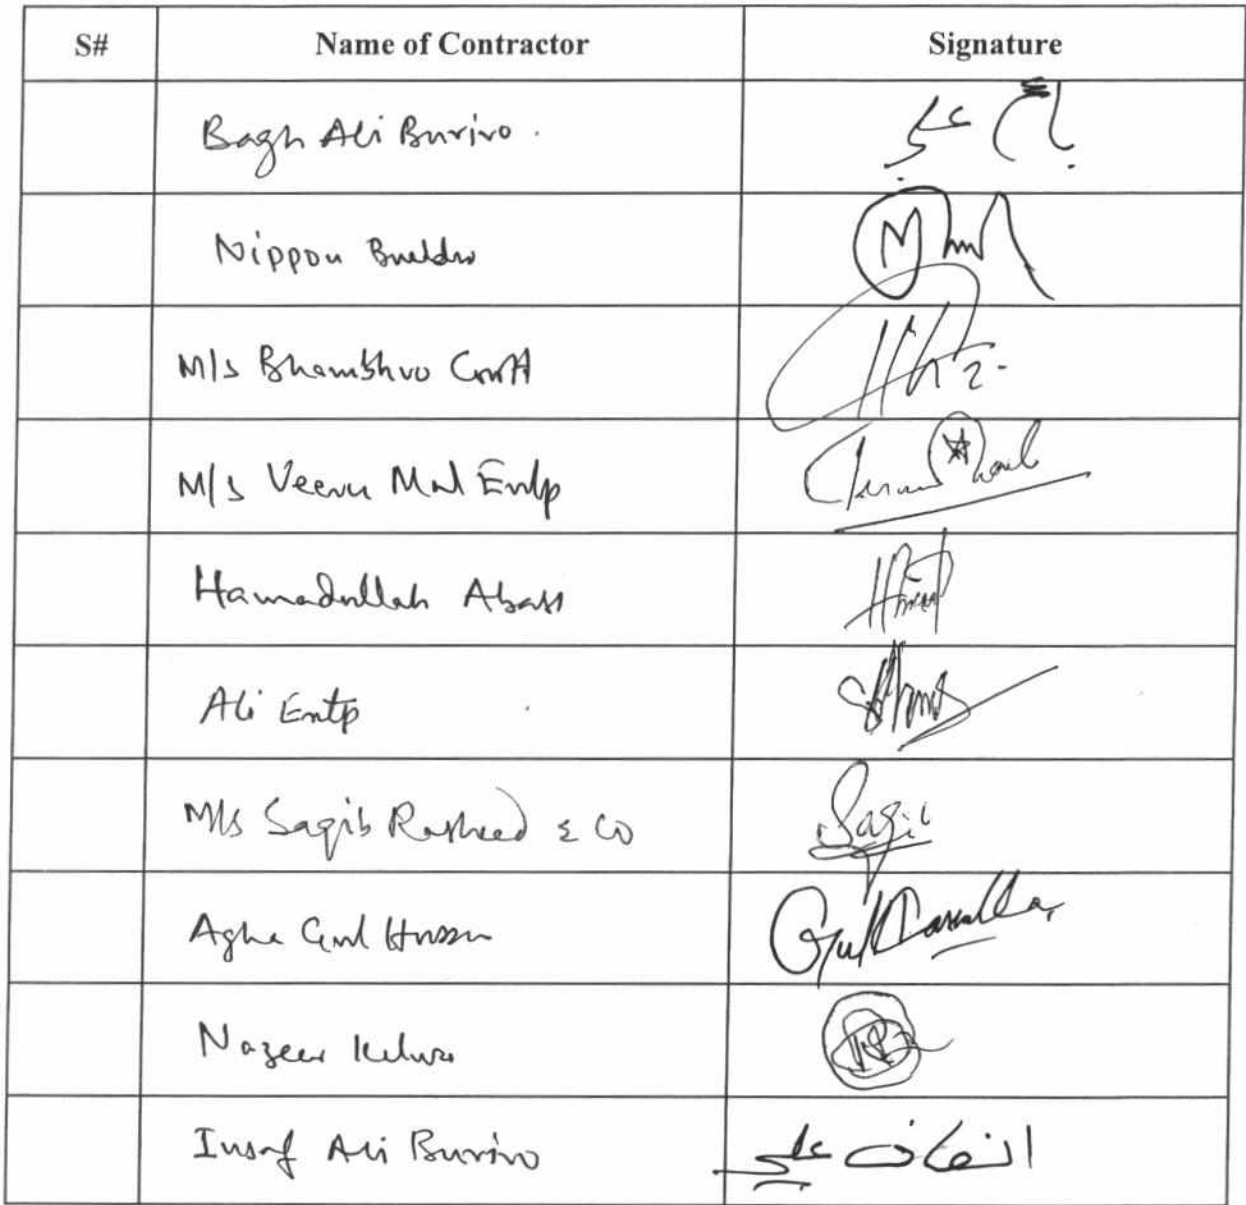 S# Name of Contractor Signature
Bagh Ali Buriro . باغ علي
Nippon Builders
M/s Bhambhro Constt
M/s Veeru Mal Entp
Hamadullah Abass
Ali Entp
M/s Saqib Rasheed & Co Saqib
Agha Gul Hussan
Nazeer
Insaf Ali Buriro انصاف علي